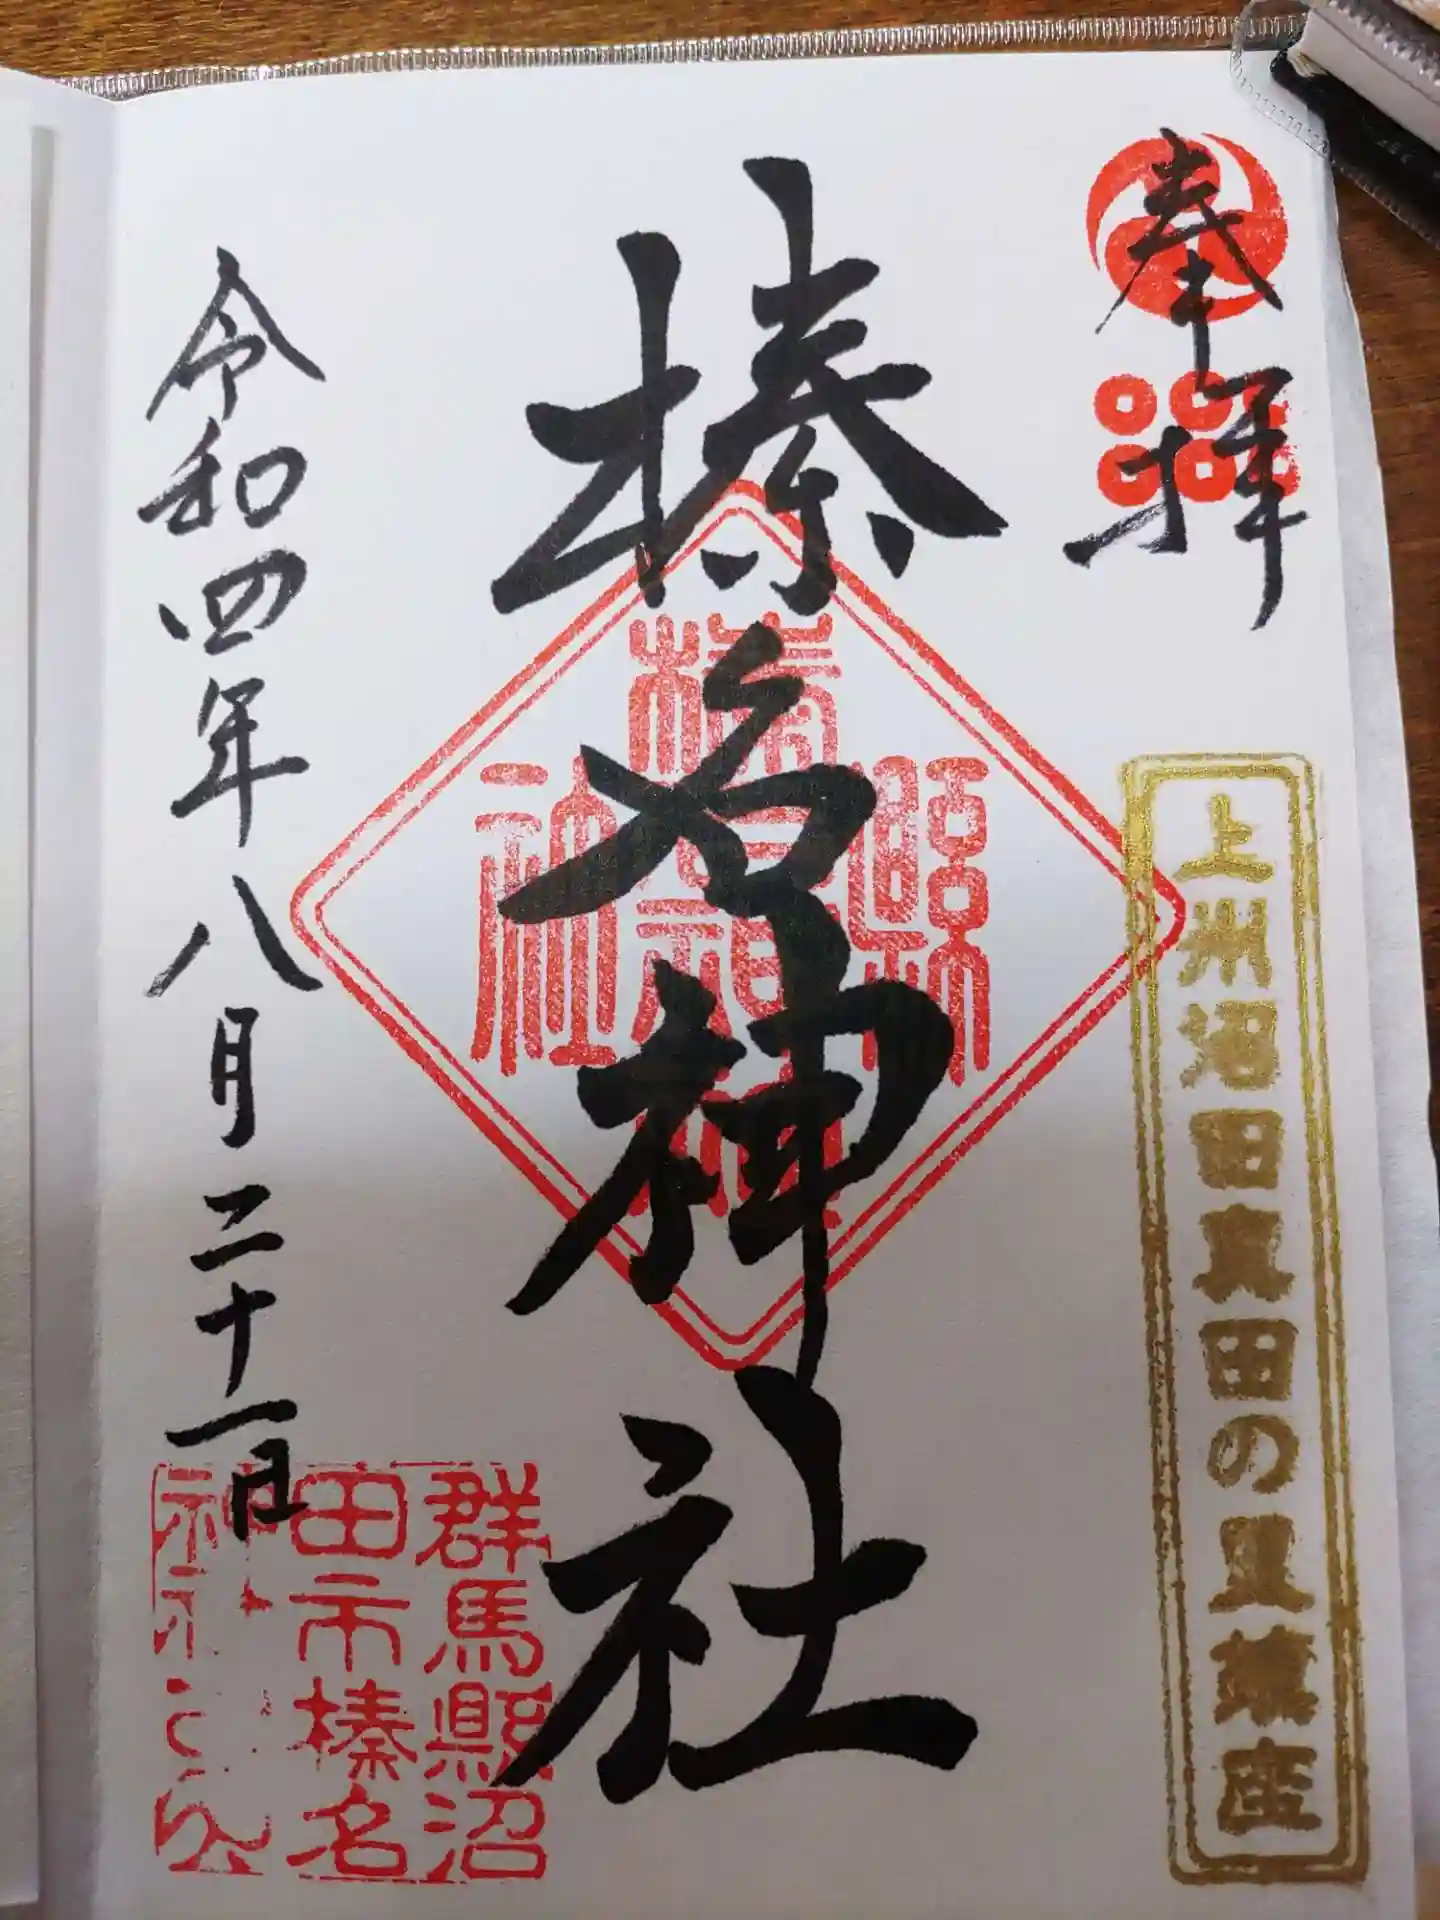 奉拝
上州沼田真田の里鎮座
榛名神社
縣社
榛名神社
群馬縣沼
田市榛名
令和四年八月二十一日